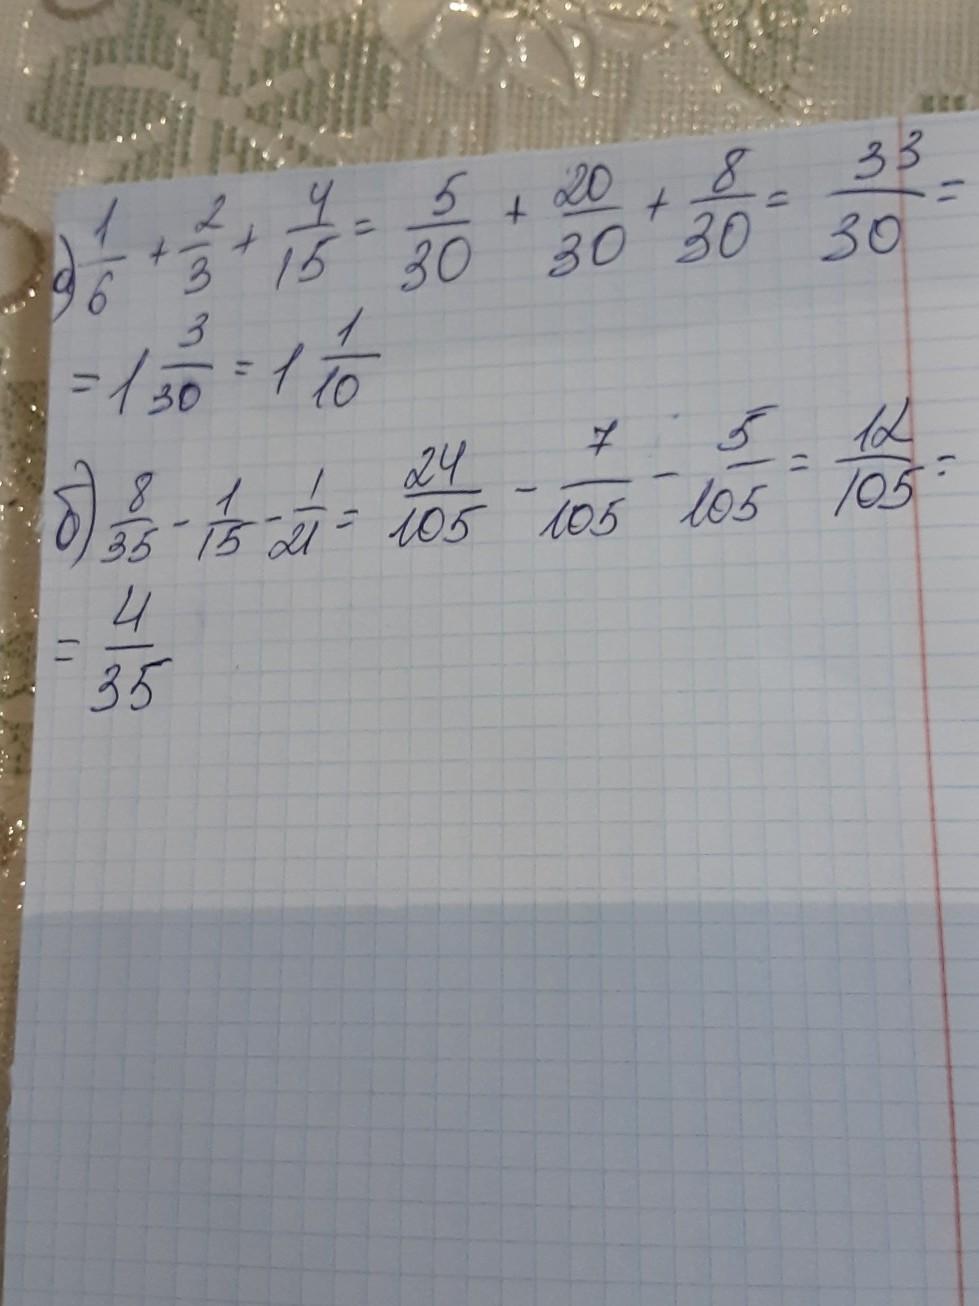 а) 1/6 + 2/3 + 4/15 = 5/30 + 20/30 + 8/30 = 33/30 =
= 1 3/30 = 1 1/10
б) 8/35 - 1/15 - 1/21 = 24/105 - 7/105 - 5/105 = 12/105 =
= 4/35